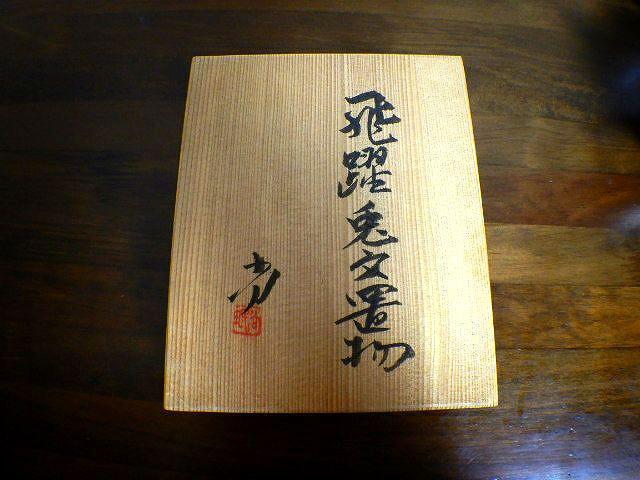 飛躍兎文置物